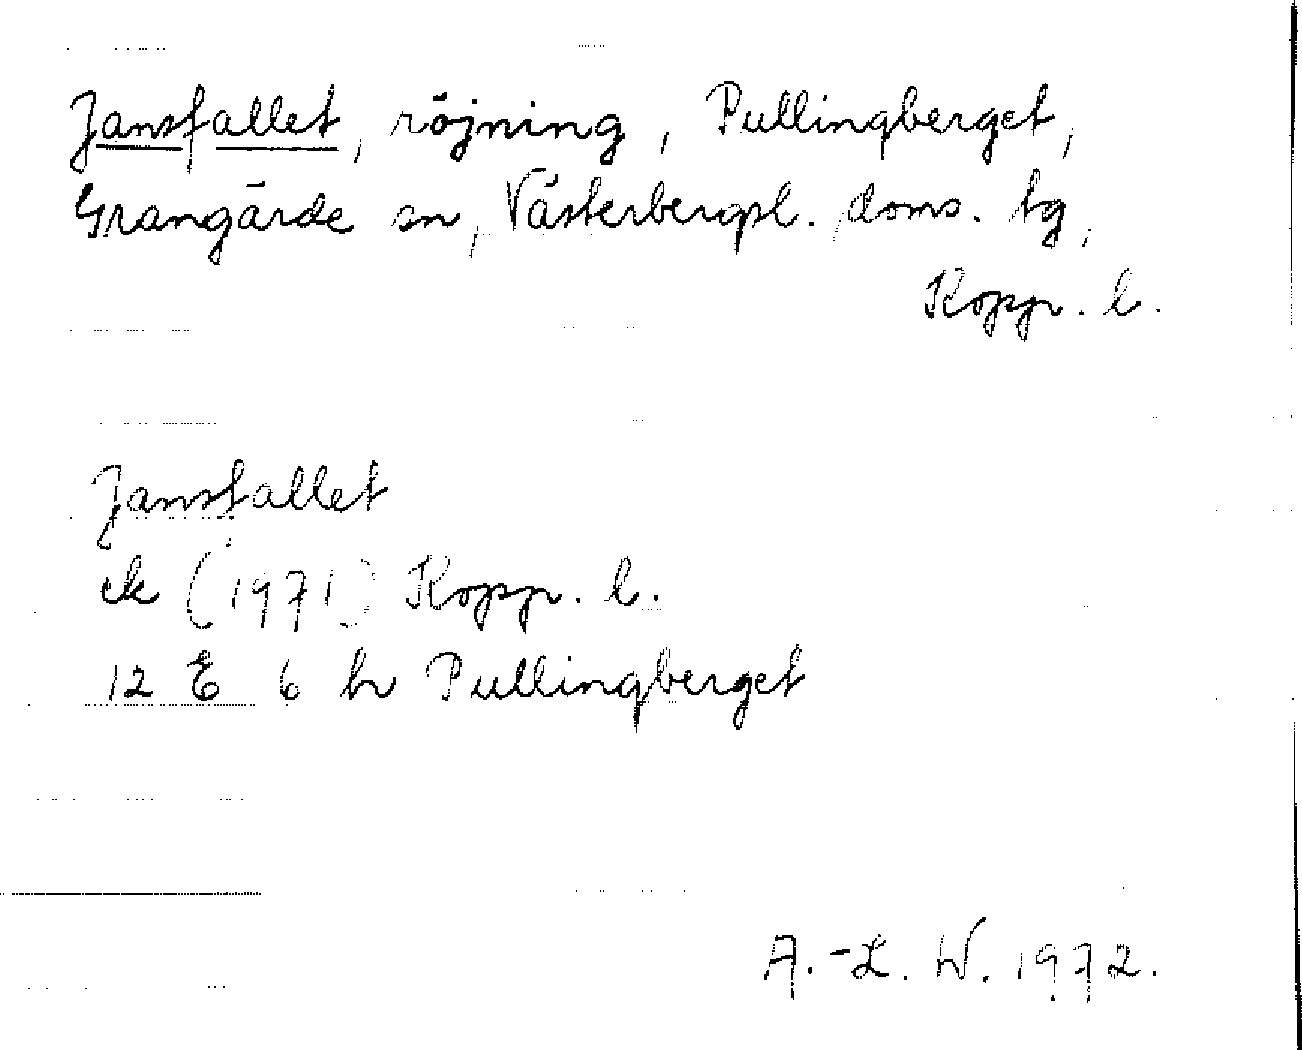 Jansfallet, röjning, Pullingberget,
Grangärde sn, Västerbergsl. doms. tg,
Kopp. l.
Jansfallet
ek (1971) Kopp. l.
12 E 6 h Pullingberget
A.-L. W. 1972.